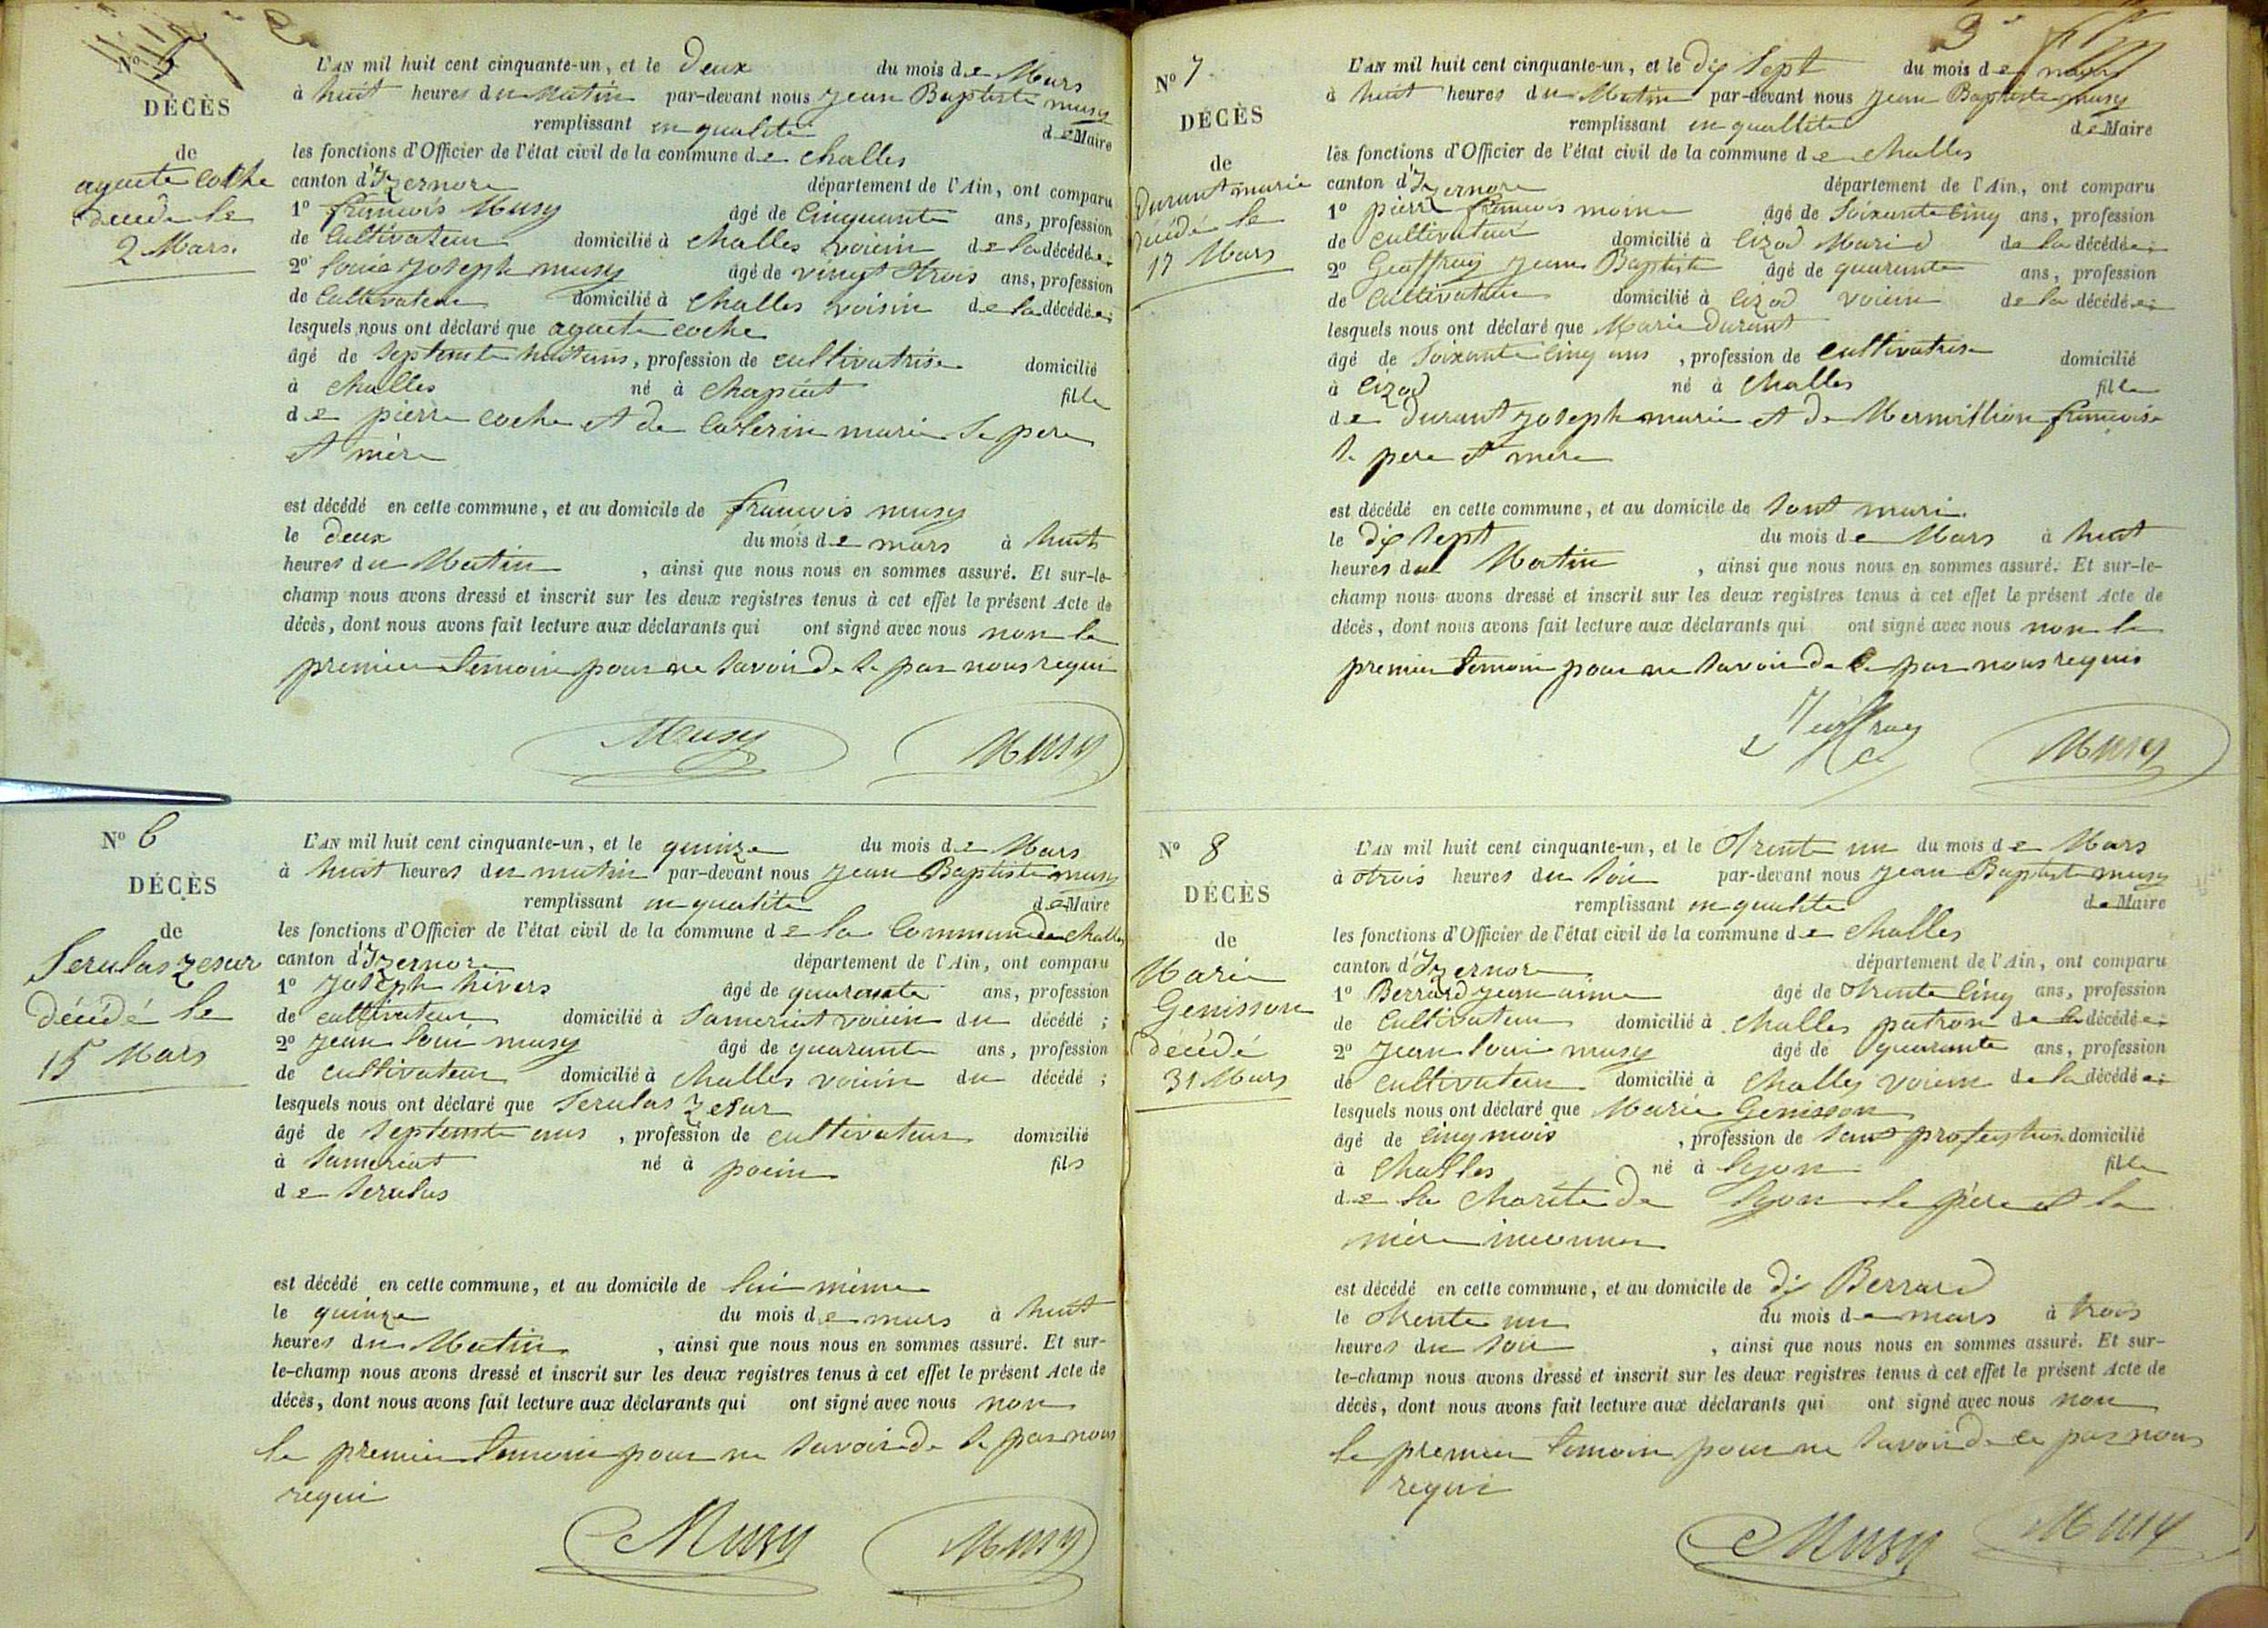 2
N° 5
DÉCÈS
de
agaette coche
décédé le
2 Mars.
L'AN mil huit cent cinquante-un, et le deux du mois de Mars
à huit heures du Matin par-devant nous jean Baptiste musy
remplissant en qualité de Maire
les fonctions d'Officier de l'état civil de la commune de challes
canton d'Izernore département de l'Ain, ont comparu
1° francois Musy âgé de Cinquante ans, profession
de Cultivateur domicilié à challes voisin de la décédée;
2° louis joseph musy âgé de vingt trois ans, profession
de Cultivateur domicilié à challes voisin de la décédée;
lesquels nous ont déclaré que agaette coche
âgé de septente huit ans, profession de cultivatrise domicilié
à challes né à chapiat fille
de pierre coche et de Caterin marie Se pere
et mère
est décédé en cette commune, et au domicile de francois musy
le deux du mois de mars à huit
heures du Matin, ainsi que nous nous en sommes assuré. Et sur-le-
champ nous avons dressé et inscrit sur les deux registres tenus à cet effet le présent Acte de
décès, dont nous avons fait lecture aux déclarants qui ont signé avec nous non le
premier temoin pour ne savoir de se par nous requi
Musy Musy
N° 6
DÉCÈS
de
Serulas zesar
décédé le
15 Mars
L'AN mil huit cent cinquante-un, et le quinze du mois de Mars
à huit heures du matin par-devant nous jean Baptiste musy
remplissant en qualité de Maire
les fonctions d'Officier de l'état civil de la commune de la Commune de challes
canton d'Izernore département de l'Ain, ont comparu
1° joseph hivers âgé de quarante ans, profession
de cultivateur domicilié à Sameriat voisin du décédé;
2° jean loui musy âgé de quarante ans, profession
de cultivateur domicilié à challes voisin du décédé;
lesquels nous ont déclaré que Serulas zesar
âgé de septente ans, profession de cultivateur domicilié
à Sameriat né à poein fils
de Serulas
est décédé en cette commune, et au domicile de lui même
le quinze du mois de mars à huit
heures du Matin, ainsi que nous nous en sommes assuré. Et sur-
le-champ nous avons dressé et inscrit sur les deux registres tenus à cet effet le présent Acte de
décès, dont nous avons fait lecture aux déclarants qui ont signé avec nous non
le premier temoin pour ne savoir de se par nous
requi
Musy Musy
3
N° 7
DÉCÈS
de
Durant marie
décédé le
17 Mars
L'AN mil huit cent cinquante-un, et le dix sept du mois de mars
à huit heures du Matin par-devant nous jean Baptiste musy
remplissant en quallité de Maire
les fonctions d'Officier de l'état civil de la commune de challes
canton d'Izernore département de l'Ain, ont comparu
1° pierre francois moine âgé de Soixante cinq ans, profession
de cultivateur domicilié à cizod Marid de la décédée;
2° Geoffray jean Baptiste âgé de quarante ans, profession
de Cultivateur domicilié à cizod voisin de la décédée;
lesquels nous ont déclaré que Marie durant
âgé de Soixante cinq ans, profession de cultivatrise domicilié
à cizod né à challes fille
de durant joseph marie et de Mermillion francoise
Se pere et mere
est décédé en cette commune, et au domicile de sont mari
le dix sept du mois de Mars à huit
heures du Matin, ainsi que nous nous en sommes assuré. Et sur-le-
champ nous avons dressé et inscrit sur les deux registres tenus à cet effet le présent Acte de
décès, dont nous avons fait lecture aux déclarants qui ont signé avec nous non le
premier temoin pour ne savoir de ce par nous requis
Geoffray Musy
N° 8
DÉCÈS
de
Marie
Genisson
décédé
31 Mars
L'AN mil huit cent cinquante-un, et le trente un du mois de Mars
à trois heures du soir par-devant nous jean Baptiste musy
remplissant en qualité de Maire
les fonctions d'Officier de l'état civil de la commune de challes
canton d'Izernore département de l'Ain, ont comparu
1° Berrard jean aimé âgé de trente cinq ans, profession
de Cultivateur domicilié à challes patron de la décédée;
2° jean loui musy âgé de quarante ans, profession
de cultivateur domicilié à challes voisin de la décédée;
lesquels nous ont déclaré que Marie Genisson
âgé de cinq mois, profession de sans profession domicilié
à challes né à lyon fille
de la charité de lyon le père et la
mère inconnus
est décédé en cette commune, et au domicile de dit Berrard
le trente un du mois de mars à trois
heures du soir, ainsi que nous nous en sommes assuré. Et sur-
le-champ nous avons dressé et inscrit sur les deux registres tenus à cet effet le présent Acte de
décès, dont nous avons fait lecture aux déclarants qui ont signé avec nous non
le premier temoin pour ne savoir de ce par nous
requi
Musy Musy